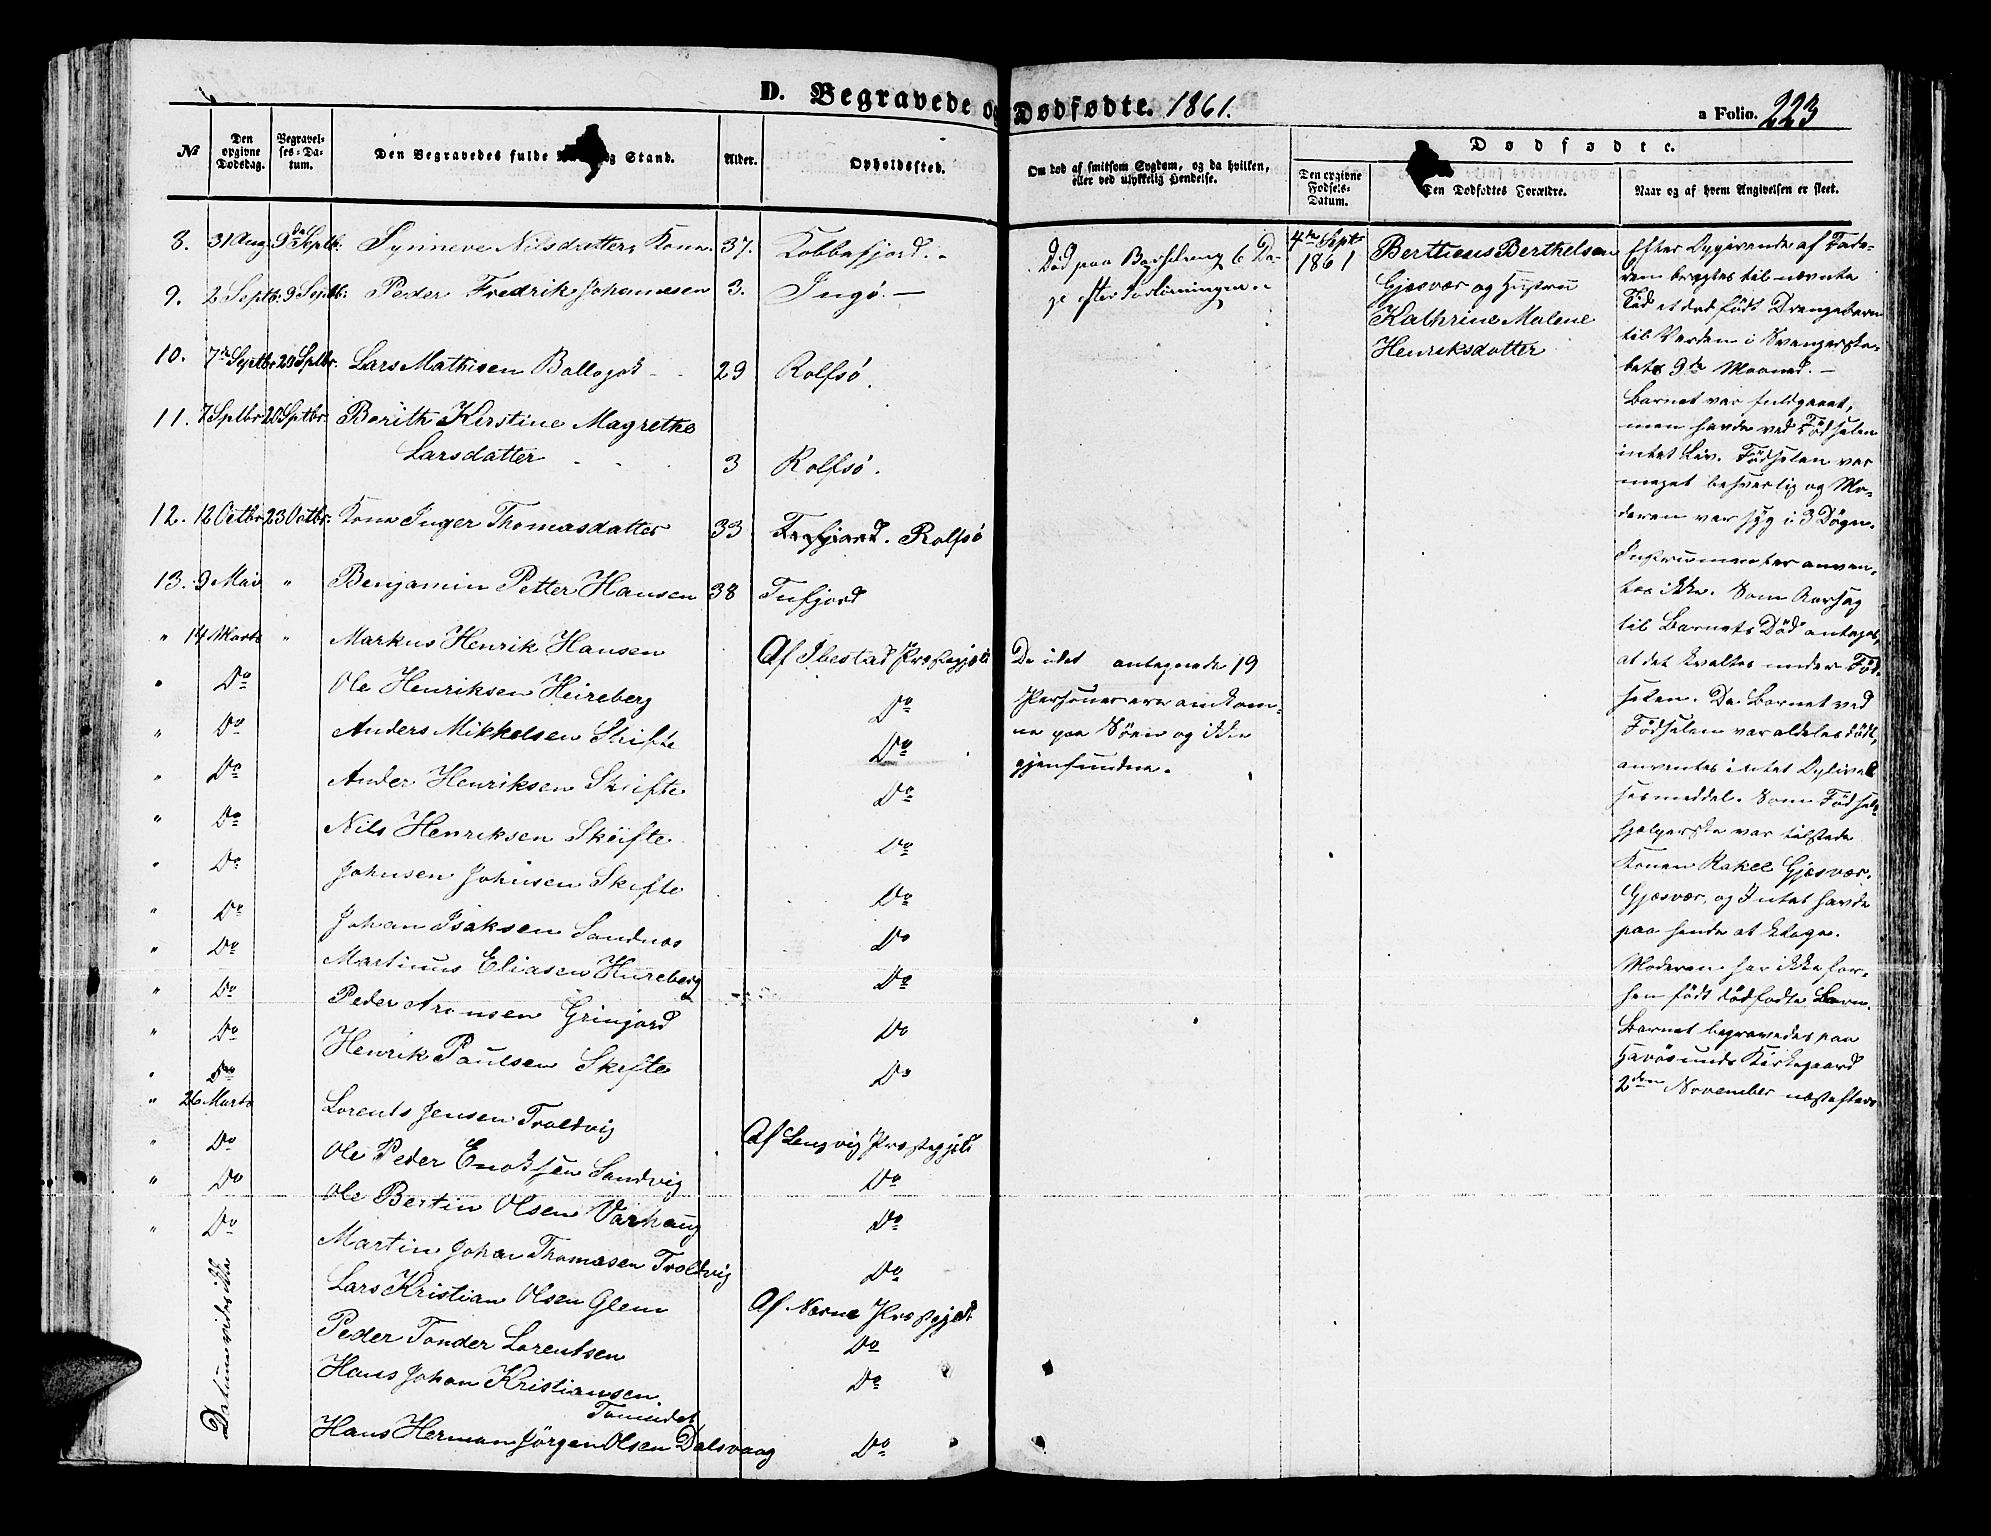 D. Begravede og Dødfødte. 1861.
a Folio. 223
№
Den opgivne Dødsdag.
Begravelses-Datum.
Den Begravedes fulde og Stand.
Alder.
Opholdssted.
Om død af smitsom Sygdom, og da hvilken, eller ved ulykkelig Hendelse.
Dødfødte.
Den opgivne Fødsels-Datum.
Den Dødfødtes Forældre.
Naar og af hvem Angivelsen er skeet.
8. 31 Aug. 9de Septb. Synneve Nilsdatter, Kone 37. Kobbefjord.
9. 2 Septb. 9 Septb. Peder Fredrik Johannesen 3. Ingø. —
10. 7de Septbr. 20 Septbr. Lars Mathisen Ballogok 29 Rolfsø.
11. 7 Septbr 20 Septbr. Berith Kirstine Magrethe
Larsdatter 3 Rolfsø.
12. 12 Octbr 23 Octbr. Kone Inger Thomasdatter 33 Tufjord. Rolfsø
13. 9 Mai " Benjamin Petter Hansen 38 Tufjord
" 14 Marts " Markus Henrik Hansen Af Ibestad Præstegjeld
" Do Ole Henriksen Heireberg Do
" Do Anders Mikkelsen Skifte Do
" Do Ander Henriksen Skifte Do
" Do Nils Henriksen Skifte Do
" Do Johnsen Johnsen Skifte Do
" Do Johan Isaksen Sandnæs Do
" Do Martinus Eliasen Hureberg Do
" Do Peder Aronsen Grinjord Do
" Do Henrik Paulsen Skifte Do
" Do
" 26 Marts Lorents Jensen Troldvig Af Lengvig Præstegjeld
" Do Ole Peder Enoksen Sandvig Do
" Do Ole Bertin Olsen Varhaug Do
" Do Martin Johan Thomasen Troldvig Do
Datum vides ikke
Lars Kristian Olsen Glem Af Nærne Præstegjeld
Peder Tonder Lorentsen Do
Hans Johan Kristiansen Do
Tomidet
Hans Herman Jørgen Olsen Dalsvaag Do
Død paa Barselseng 6 Da-
ge efter Forløsningen.
De idet antegnede 19
Personer ere omkom-
ne paa Søen og ikke
gjenfundne.
4de Sept.
1861
Bertheus Berthelsen
Gjæsvær og Hustru
Kathrine Malene
Henriksdatter
Efter Opgivende af Fade-
ren bragtes til nævnte
Tid et dødfødt Drengebarn
til Verden i Svangerska-
bets 9de Maaned. —
Barnet var fuldbaaret,
men havde ved Fødselen
intet Liv. Fødselen var
meget besværlig og Mo-
deren var syg i 3 Døgn.
Instrumenter anven-
tes ikke. Som Aarsag
til Barnets Død antages,
at det kvaltes under Fød-
selen. Da Barnet ved
Fødselen var aldeles dødt,
anventes intet Oplivel-
sesmiddel. Som Fødsels-
hjelperske var tilstede
Konen Rakel Gjæsvær,
Gjæsvær, og Intet havde
paa hende at klage.
Moderen har ikke før-
hen født dødfødte Børn.
Barnet begravedes paa
Havøsunds Kirkegaard
2den November næstefter.